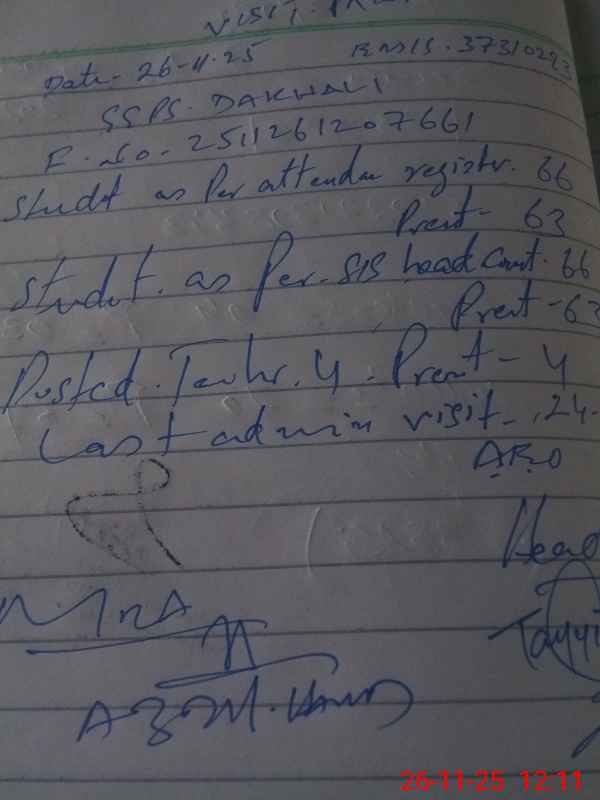 Date- 26-11-25 EMIS. 37310293
SSPS. DAKHALI
F. No- 251126120 7661
Studet as Per attendan registr. 66
Preset- 63
Studet. as Per. SIS head Count. 66
Preset - 63
Posted. Teachr. 4. Preset - 4
Last admin visit- 24-
AEO
Head
MnA
AZM. KHAN
26-11-25 12:11